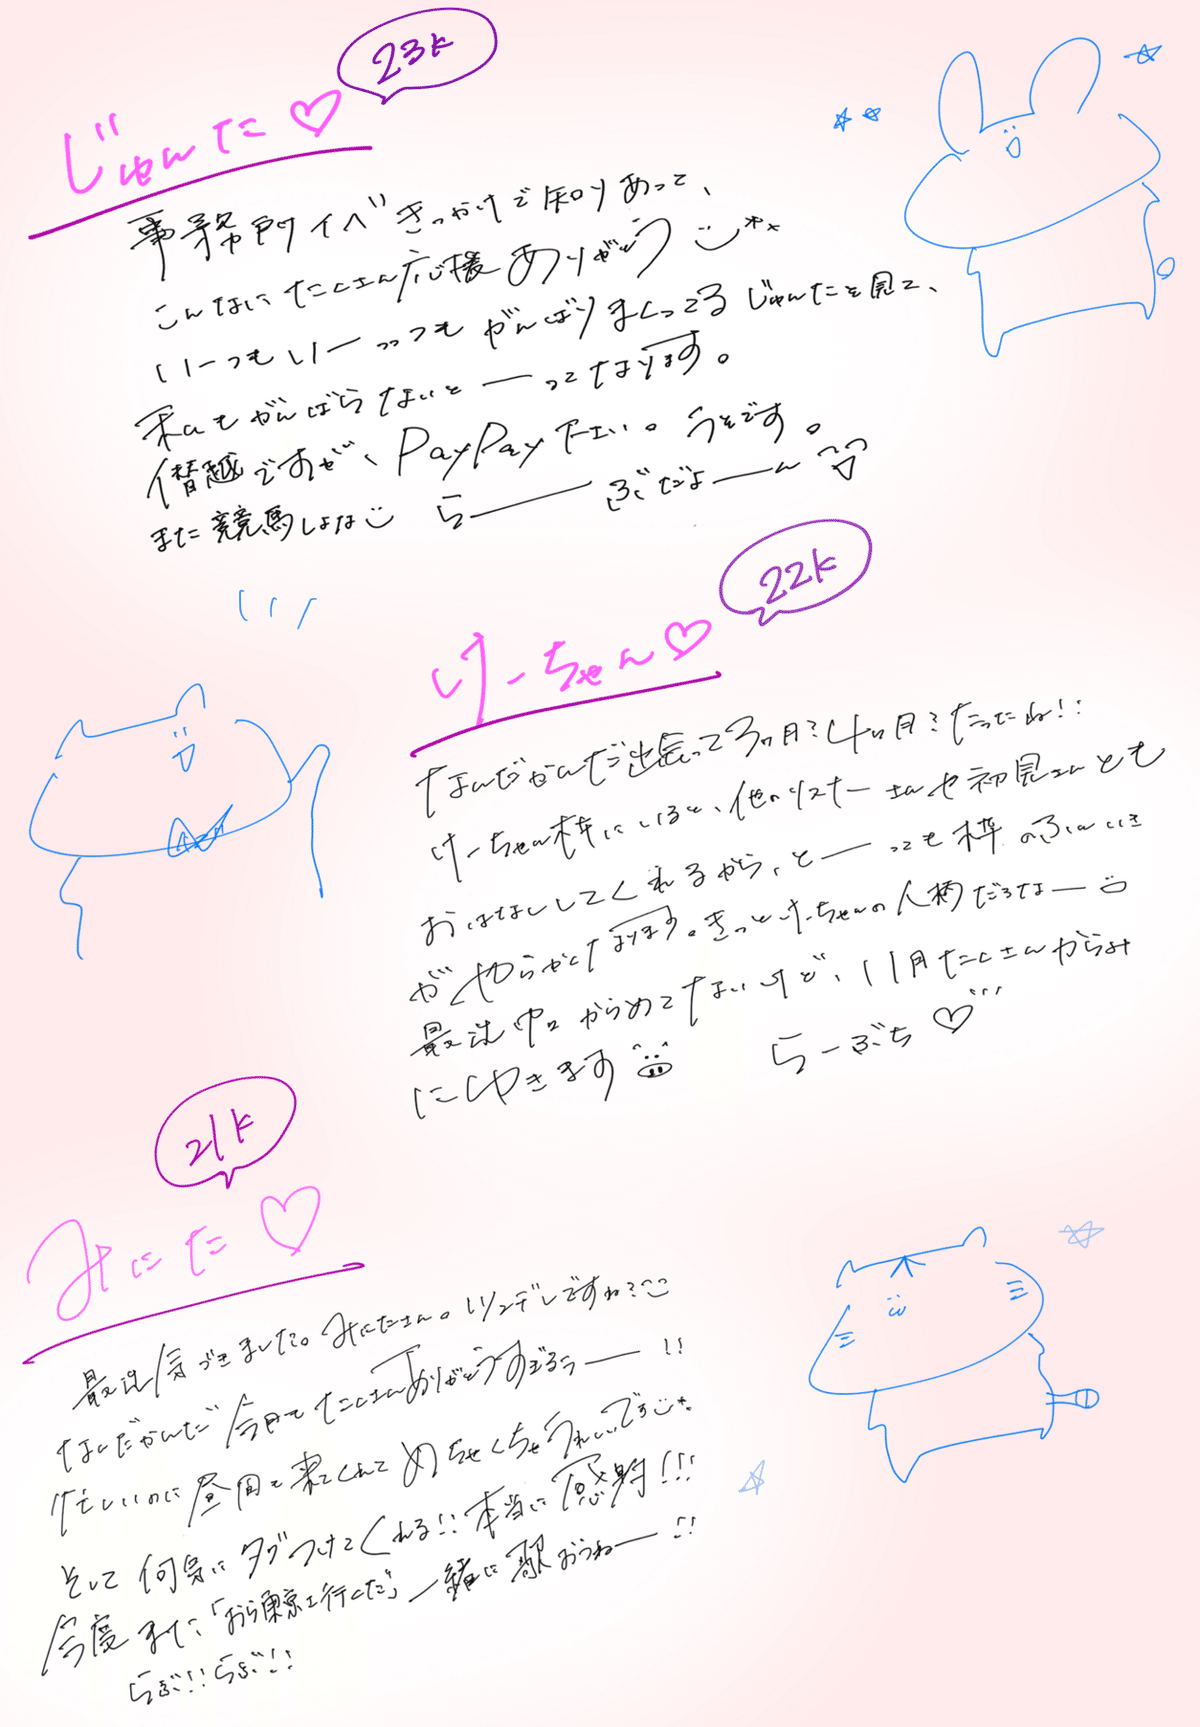 23k
じゅんた♡
事務所イベきっかけで知りあって、
こんなにたくさん応援ありがとう
いーつもいーっつもがんばりまくってるじゅんたを見て、
私もがんばらないとーってなります。
僭越ですが、PayPay下さい。うそです。
また競馬しよな らーぶだよーん
22k
けーちゃん♡
なんだかんだ出会って3ヶ月?4ヶ月?たったね!!
けーちゃん枠にいると、他のリスナーさんや初見さんとも
おはなししてくれるから、とーっても枠のふんいき
がやわらかくなります。きっとけーちゃんの人柄だろなー
最近中々からめてないけど、11月たくさんからみ
にいきます らーぶち♡
21k
みにた♡
最近気づきました。みにたさん。ツンデレですね?
なんだかんだ今月もたくさんありがとうすぎるぅー!!
忙しいのに昼間も来てくれてめちゃくちゃうれしいです
そして何気にタグつけてくれる!!本当に感謝!!!
今度また「おら東京さ行くだ」一緒に歌おうねー!!
らぶ!!らぶ!!